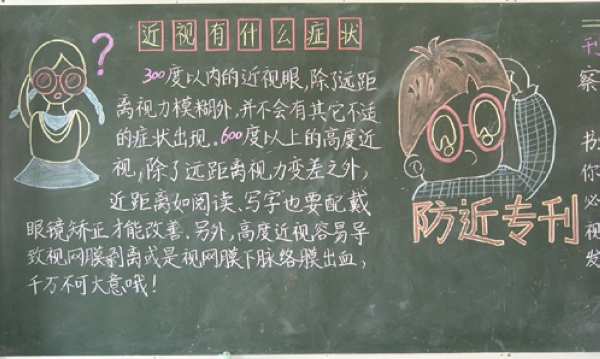 ?
近视有什么症状
300度以内的近视眼,除了远距
离视力模糊外,并不会有其它不适
的症状出现。600度以上的高度近
视,除了远距离视力变差之外,
近距离如阅读、写字也要配戴
眼镜矫正才能改善。另外,高度近视容易导
致视网膜剥离或是视网膜下脉络膜出血,
千万不可大意哦!
防近专刊
刊
察
你
必
视
发